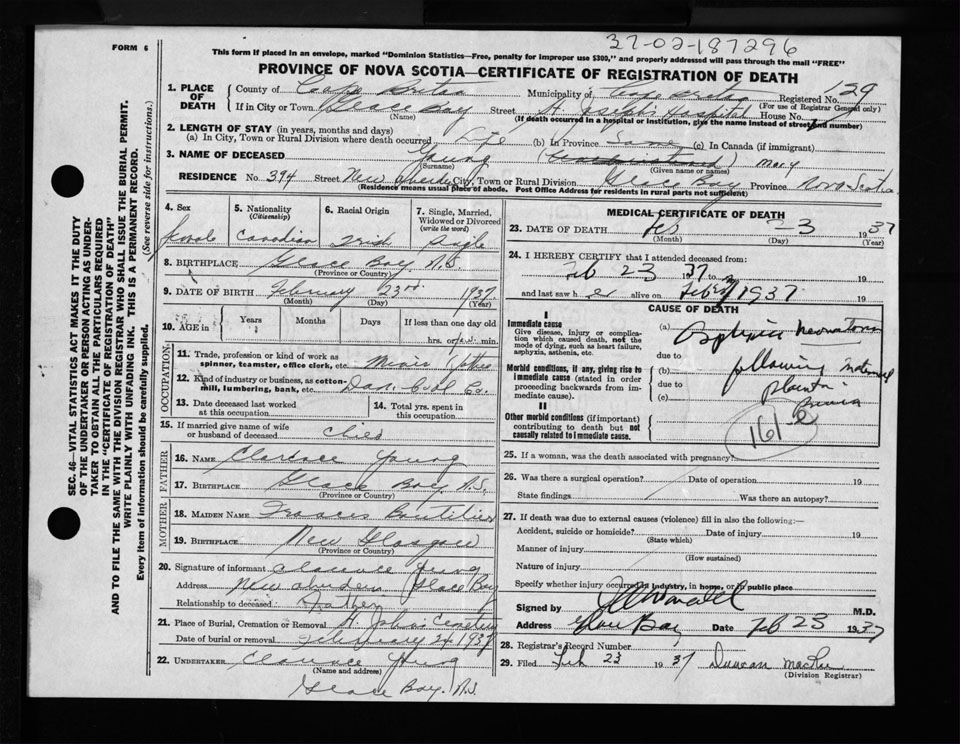 37-02-187296
FORM 6
This form if placed in an envelope, marked "Dominion Statistics—Free, penalty for improper use $300," and properly addressed will pass through the mail "FREE"
PROVINCE OF NOVA SCOTIA—CERTIFICATE OF REGISTRATION OF DEATH
SEC. 46—VITAL STATISTICS ACT MAKES IT THE DUTY
OF THE UNDERTAKER OR PERSON ACTING AS UNDER-
TAKER TO OBTAIN ALL THE PARTICULARS REQUIRED
IN THE "CERTIFICATE OF REGISTRATION OF DEATH"
AND TO FILE THE SAME WITH THE DIVISION REGISTRAR WHO SHALL ISSUE THE BURIAL PERMIT.
WRITE PLAINLY WITH UNFADING INK. THIS IS A PERMANENT RECORD.
Every item of information should be carefully supplied. (See reverse side for instructions.)
1. PLACE OF DEATH County of Cape Breton Municipality of Cape Breton Registered No. 129
(For use of Registrar General only)
If in City or Town Glace Bay Street St. Joseph's Hospital House No.
(Name) (If death occurred in a hospital or institution, give the name instead of street and number)
2. LENGTH OF STAY (in years, months and days)
(a) In City, Town or Rural Division where death occurred Life (b) In Province Same (c) In Canada (if immigrant)
3. NAME OF DECEASED Young () Mary
(Surname) (Given name or names)
RESIDENCE No. 394 Street New Aberdeen City, Town or Rural Division Glace Bay Province Nova Scotia
(Residence means usual place of abode. Post Office Address for residents in rural parts not sufficient)
4. Sex female
5. Nationality (Citizenship) Canadian
6. Racial Origin Irish
7. Single, Married, Widowed or Divorced (write the word) Single
8. BIRTHPLACE Glace Bay, N.S.
(Province or Country)
9. DATE OF BIRTH February 23rd 1937
(Month) (Day) (Year)
10. AGE in Years Months Days If less than one day old
hrs. or min.
OCCUPATION
11. Trade, profession or kind of work as spinner, teamster, office clerk, etc.
12. Kind of industry or business, as cotton-mill, lumbering, bank, etc. Dom. Coal Co.
13. Date deceased last worked at this occupation
14. Total yrs. spent in this occupation
15. If married give name of wife or husband of deceased Child
FATHER
16. NAME Clarence Young
17. BIRTHPLACE Glace Bay, N.S.
(Province or Country)
MOTHER
18. MAIDEN NAME Frances Boutilier
19. BIRTHPLACE New Glasgow
(Province or Country)
20. Signature of informant Clarence Young
Address New Aberdeen Glace Bay
Relationship to deceased Father
21. Place of Burial, Cremation or Removal St. John's Cemetery
Date of burial or removal February 24 1937
22. UNDERTAKER Clarence Young
(Name and address)
Glace Bay. N.S.
MEDICAL CERTIFICATE OF DEATH
23. DATE OF DEATH Feb 23 1937
(Month) (Day) (Year)
24. I HEREBY CERTIFY that I attended deceased from:
Feb 23 1937 to 19
and last saw h er alive on Feb 23 1937 19
CAUSE OF DEATH
I
Immediate cause
Give disease, injury or complication which caused death, not the mode of dying, such as heart failure, asphyxia, asthenia, etc.
(a) Asphyxia neonatorum
due to
Morbid conditions, if any, giving rise to immediate cause (stated in order proceeding backwards from immediate cause).
(b) following maternal
due to
(c) placenta praevia
II
Other morbid conditions (if important) contributing to death but not causally related to immediate cause.
161-a
25. If a woman, was the death associated with pregnancy?
26. Was there a surgical operation? Date of operation 19
State findings Was there an autopsy?
27. If death was due to external causes (violence) fill in also the following:—
Accident, suicide or homicide? Date of injury 19
(State which)
Manner of injury
(How sustained)
Nature of injury
Specify whether injury occurred in industry, in home, or in public place
Signed by M.D.
Address Glace Bay Date Feb 23 1937
28. Registrar's Record Number
29. Filed Feb 23 1937 Duncan MacRae
(Division Registrar)